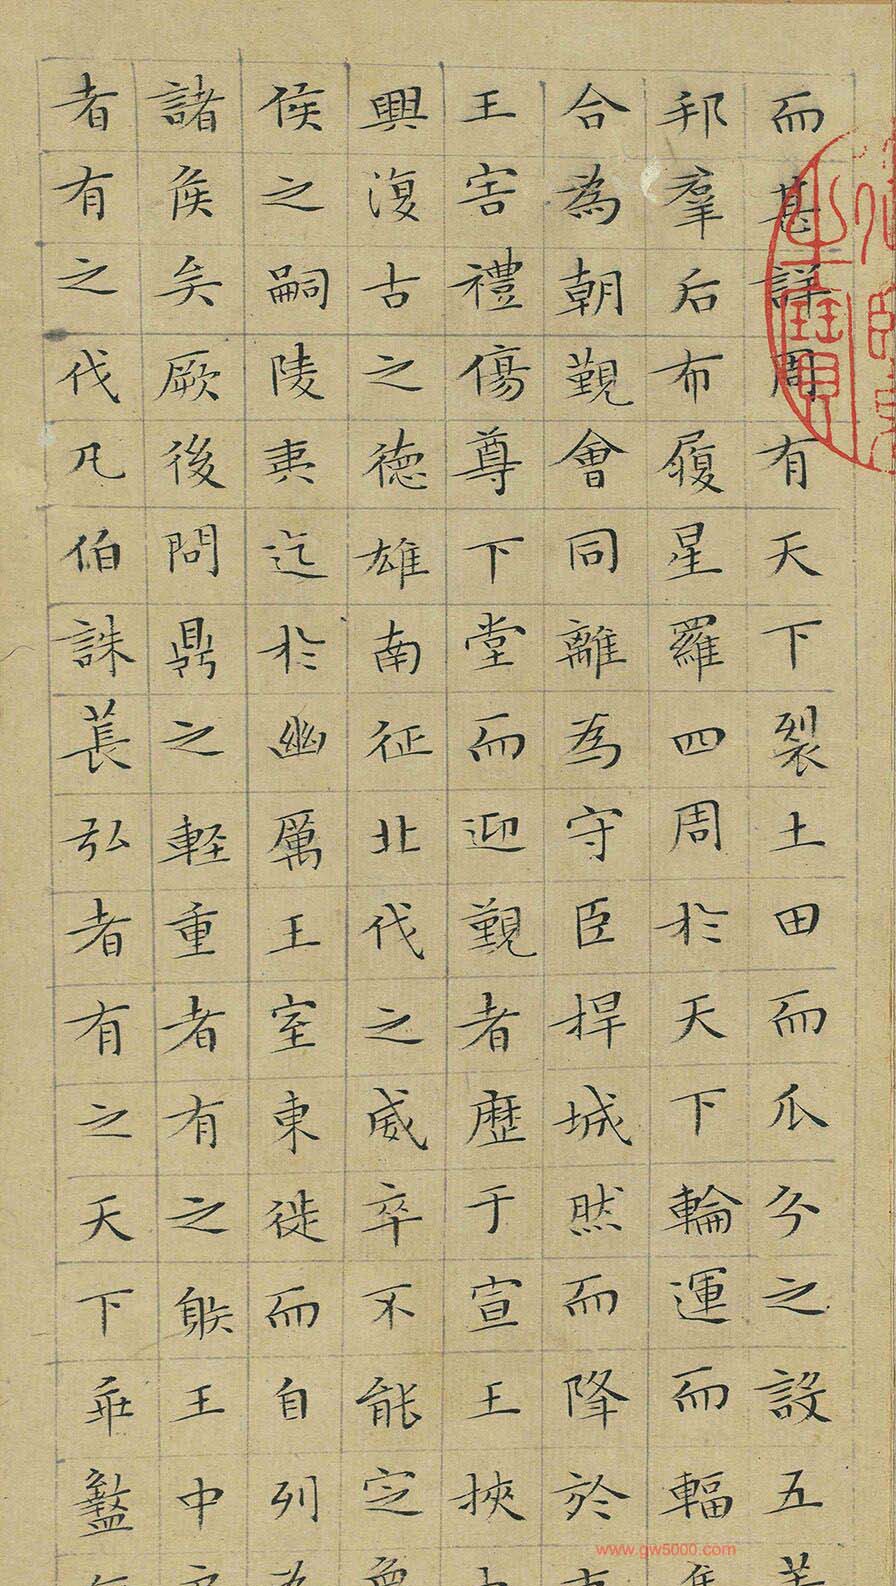 而甚詳周有天下裂土田而瓜分之設五
邦羣后布履星羅四周於天下輪運而輻
合為朝覲會同離為守臣捍城然而降於
王害禮傷尊下堂而迎覲者歷于宣王挾
興復古之德雄南征北伐之威卒不能定
侯之嗣陵夷迄於幽厲王室東徙而自列
諸侯矣厥後問鼎之輕重者有之躲王中
者有之伐凡伯誅萇弘者有之天下乖盭
www.gw5000.com